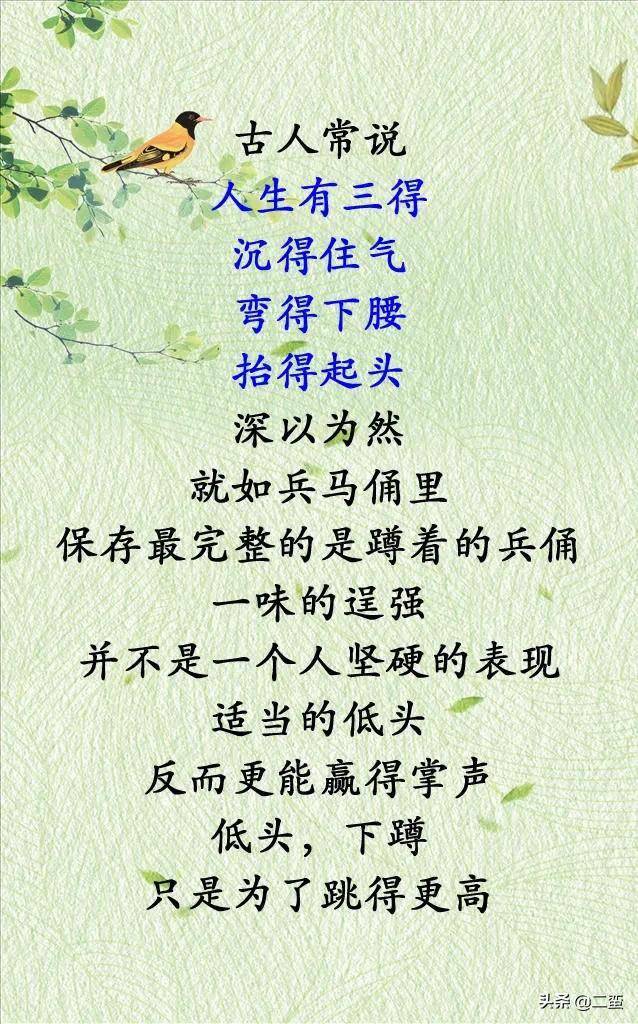 古人常说
人生有三得
沉得住气
弯得下腰
抬得起头
深以为然
就如兵马俑里
保存最完整的是蹲着的兵俑
一味的逞强
并不是一个人坚硬的表现
适当的低头
反而更能赢得掌声
低头，下蹲
只是为了跳得更高
头条 @二蛮